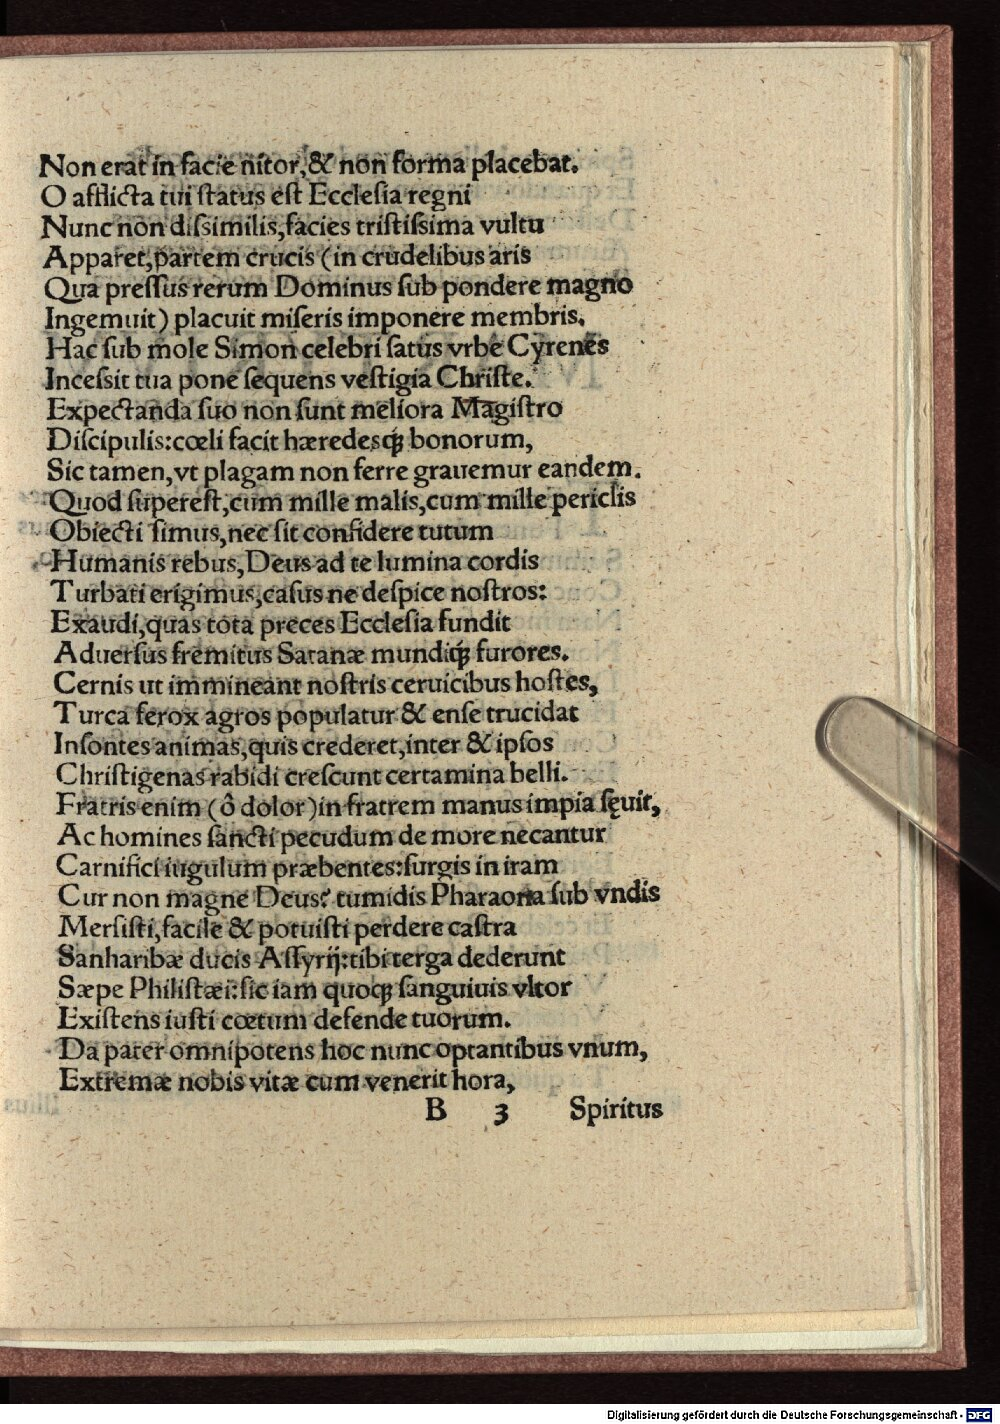 Non erat in facie nitor,& non forma placebat.
O afflicta tui ſtatus eſt Eccleſia regni
Nunc non diſsimilis,facies triſtiſsima vultu
Apparet,partem crucis (in crudelibus aris
Qua preſſus rerum Dominus ſub pondere magno
Ingemuit) placuit miſeris imponere membris.
Hac ſub mole Simon celebri ſatus vrbe Cyrenes
Inceſsit tua pone ſequens veſtigia Chriſte.
Expectanda ſuo non ſunt meliora Magiſtro
Diſcipulis:cœli facit hæredesq́ꝫ bonorum,
Sic tamen,vt plagam non ferre grauemur eandem.
Quod ſupereſt,cum mille malis,cum mille periclis
Obiecti ſimus,nec ſit confidere tutum
Humanis rebus,Deus ad te lumina cordis
Turbati erigimus,caſus ne deſpice noſtros:
Exaudi,quas tota preces Eccleſia fundit
Aduerſus fremitus Satanæ mundiq́ꝫ furores.
Cernis ut immineant noſtris ceruicibus hoſtes,
Turca ferox agros populatur & enſe trucidat
Inſontes animas,quis crederet,inter & ipſos
Chriſtigenas rabidi creſcunt certamina belli.
Fratris enim (ô dolor)in fratrem manus impia ſęuit,
Ac homines ſancti pecudum de more necantur
Carnifici iugulum præbentes:ſurgis in iram
Cur non magne Deus? tumidis Pharaona ſub vndis
Merſiſti,facile & potuiſti perdere caſtra
Sanharibæ ducis Aſſyrij:tibi terga dederunt
Sæpe Philiſtæi:ſic iam quoqꝫ ſanguiuis vltor
Exiſtens iuſti cœtum defende tuorum.
Da pater omnipotens hoc nunc optantibus vnum,
Extremæ nobis vitæ cum venerit hora,
B 3 Spiritus
Digitalisierung gefördert durch die Deutsche Forschungsgemeinschaft - DFG